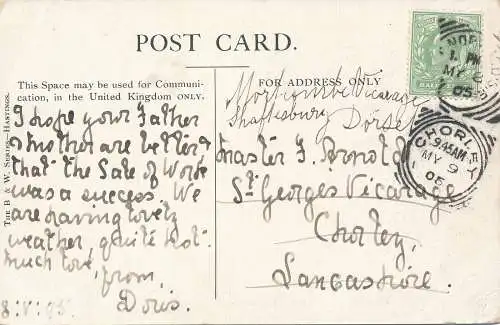 POST CARD.
This Space may be used for Communi-
cation, in the United Kingdom ONLY.
FOR ADDRESS ONLY
THE B & W. SERIES—HASTINGS.
I hope your Father
& Mother are better &
that the Sale of Work
was a success. We
are having lovely
weather, quite hot.
Much love,
from,
Doris.
8: V: 05.
Vicarage
Shaftesbury
Dorset
Master J. Arnold
St. Georges Vicarage
Chorley,
Lancashire.
MY
05
CHORLEY
9.45AM
MY 9
05